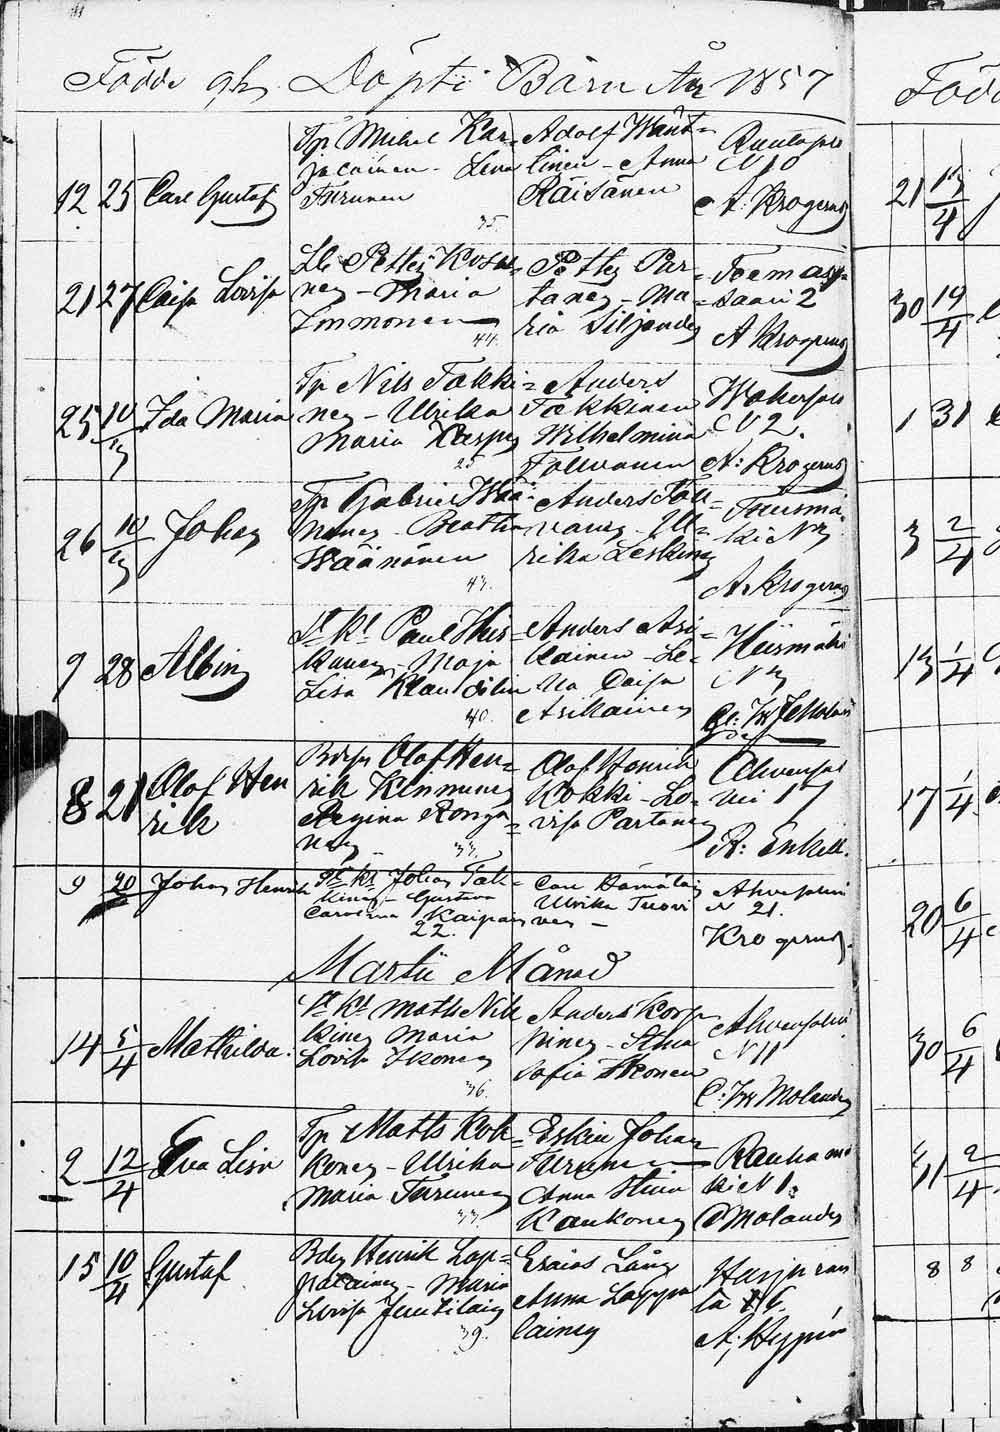 Födde och Döpte Barn År 1857
12 25 Carl Gustaf
Tp Michel Kar=
jalainen - Lena
Turunen
35.
Adolf Want=
tinen - Anna
Räisänen
Rautajär
N 10
A: Krogerus
21 27 Caisa Lovisa
Petter Kosu=
nen - Maria
Immonen
44.
Petter Par=
tanen - Ma=
ria Siljander
saari 2
A Krogerus
25 10/3 Ida Maria
Tp Nils Takki=
nen - Ulrika
Maria Kaspen
25
Anders
Takkinen
Wilhelmina
Tolwanen
N 2.
A: Krogerus
26 10/3 Johan
Tp Gabriel Wää=
nänen - Beatha
Wäänänen
43.
Anders Tol=
vanen - Ul=
rika Leskinen
Tuusmä=
ki N 3
A: Krogerus
9 28 Albin
Paul Hus=
kunen - Maja
Lisa Klaudilin
40.
Anders Asi=
kainen - Le=
na Caisa
Asikainen
Hiismäki
N 3
8 21 Olof Hen
rik
Olof Hen=
rik Kinnunen
Regina Ronga=
nen
33.
Olof Henrik
Kokki - Lo=
visa Partanen
Ahvensal
mi 17
R: Enkell.
9 20 Johan Henrik
Johan Tak=
kinen - Gustava
Carolina Kaipai
22.
Carl Hämäläin
Ulrika Tuovi
nen -
Ahvensalmi
N 21.
Krogerus.
Martii Månad
14 5/4 Mathilda.
Matts Nik
kinen Maria
Lovisa Ikonen
36.
Anders Korp
pinen - Stina
Sofia Ikonen
Ahvensalmi
N 11
C: Molander
2 12/4 Eva Lisa
Tp Matts Kok=
konen - Ulrika
Maria Turunen
33.
Eskil Johan
Turunen
Anna Stina
Kaukonen
Rauhamä
ki N 1.
C Molander
15 10/4 Gustaf
Henrik Lap=
palainen - Maria
Lovisa Juutilain
39.
Esaias Lång
Anna Lappa
lainen
Harjuran
ta 6.
21 13/4
30 19/4
1 31
3 2/4
13 1/4
17 1/4
20 6/4
30 6/4
31 2/4
8 8